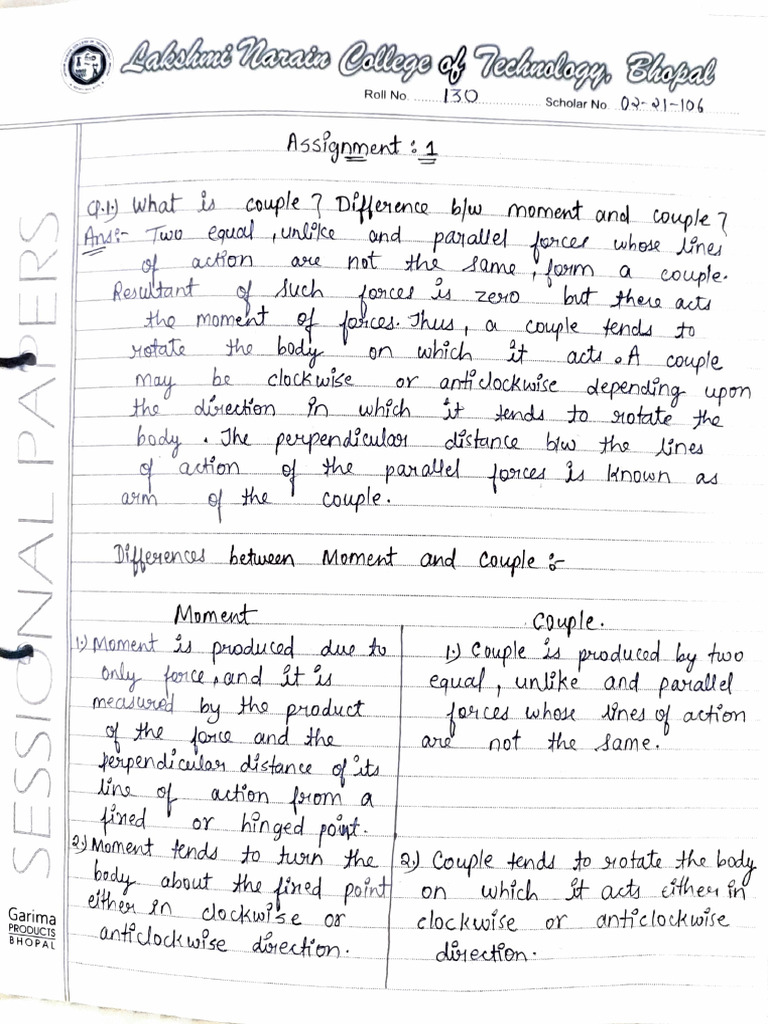 Lakshmi Narain College of Technology, Bhopal
Roll No. 130
Scholar No. 02-21-106
Assignment : 1
Q.1.) What is couple? Difference b/w moment and couple?
Ans:- Two equal, unlike and parallel forces whose lines
of action are not the same, form a couple.
Resultant of such forces is zero but there acts
the moment of forces. Thus, a couple tends to
rotate the body on which it acts. A couple
may be clockwise or anticlockwise depending upon
the direction in which it tends to rotate the
body. The perpendicular distance b/w the lines
of action of the parallel forces is known as
arm of the couple.
Differences between Moment and Couple :-
Moment
1.) Moment is produced due to
only force, and it is
measured by the product
of the force and the
perpendicular distance of its
line of action from a
fixed or hinged point.
2.) Moment tends to turn the
body about the fixed point
either in clockwise or
anticlockwise direction.
Couple.
1.) Couple is produced by two
equal, unlike and parallel
forces whose lines of action
are not the same.
2.) Couple tends to rotate the body
on which it acts either in
clockwise or anticlockwise
direction.
SESSIONAL PAPERS
Garima
PRODUCTS
BHOPAL